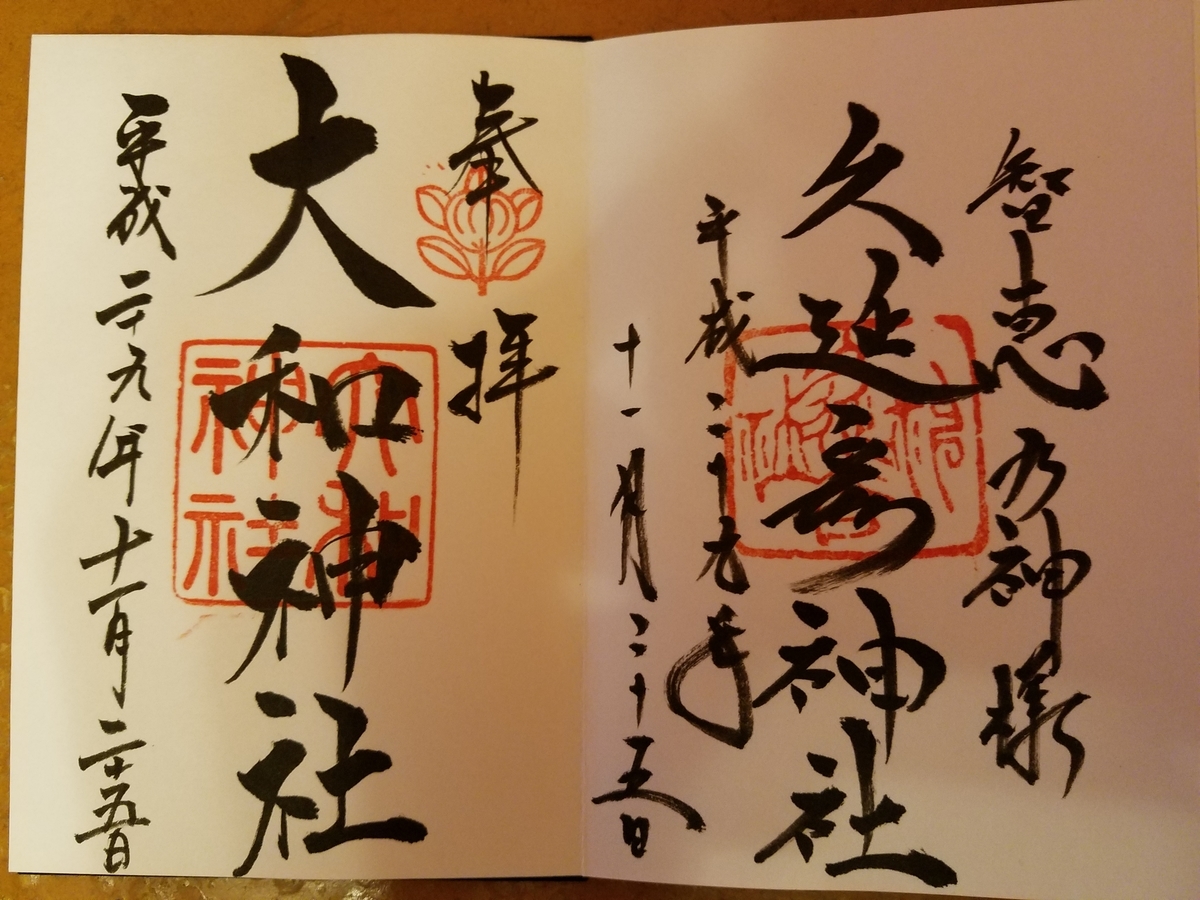 智恵乃神様
久延彦神社
平成二十九年
十一月二十五日
奉拝
大和神社
大和
神社
平成二十九年十一月二十五日